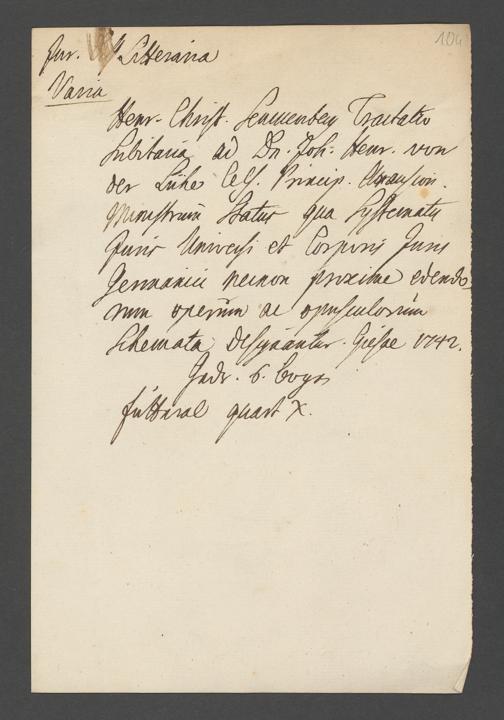 104
Jur. Litteraria
Varia
Henr. Christ. Senckenberg Tractatio
Subitaria ad Dn. Joh. Henr. von
der Lühe Cels. Princip. Onausion.
Ministrum Status qua Systematis
Juris Universi et Corporis Juris
Germanici necnon proxime edendo
rum operum ac opusculorum
Schemata designantur. Giesae 1742.
6. Bogn
futteral quart X.